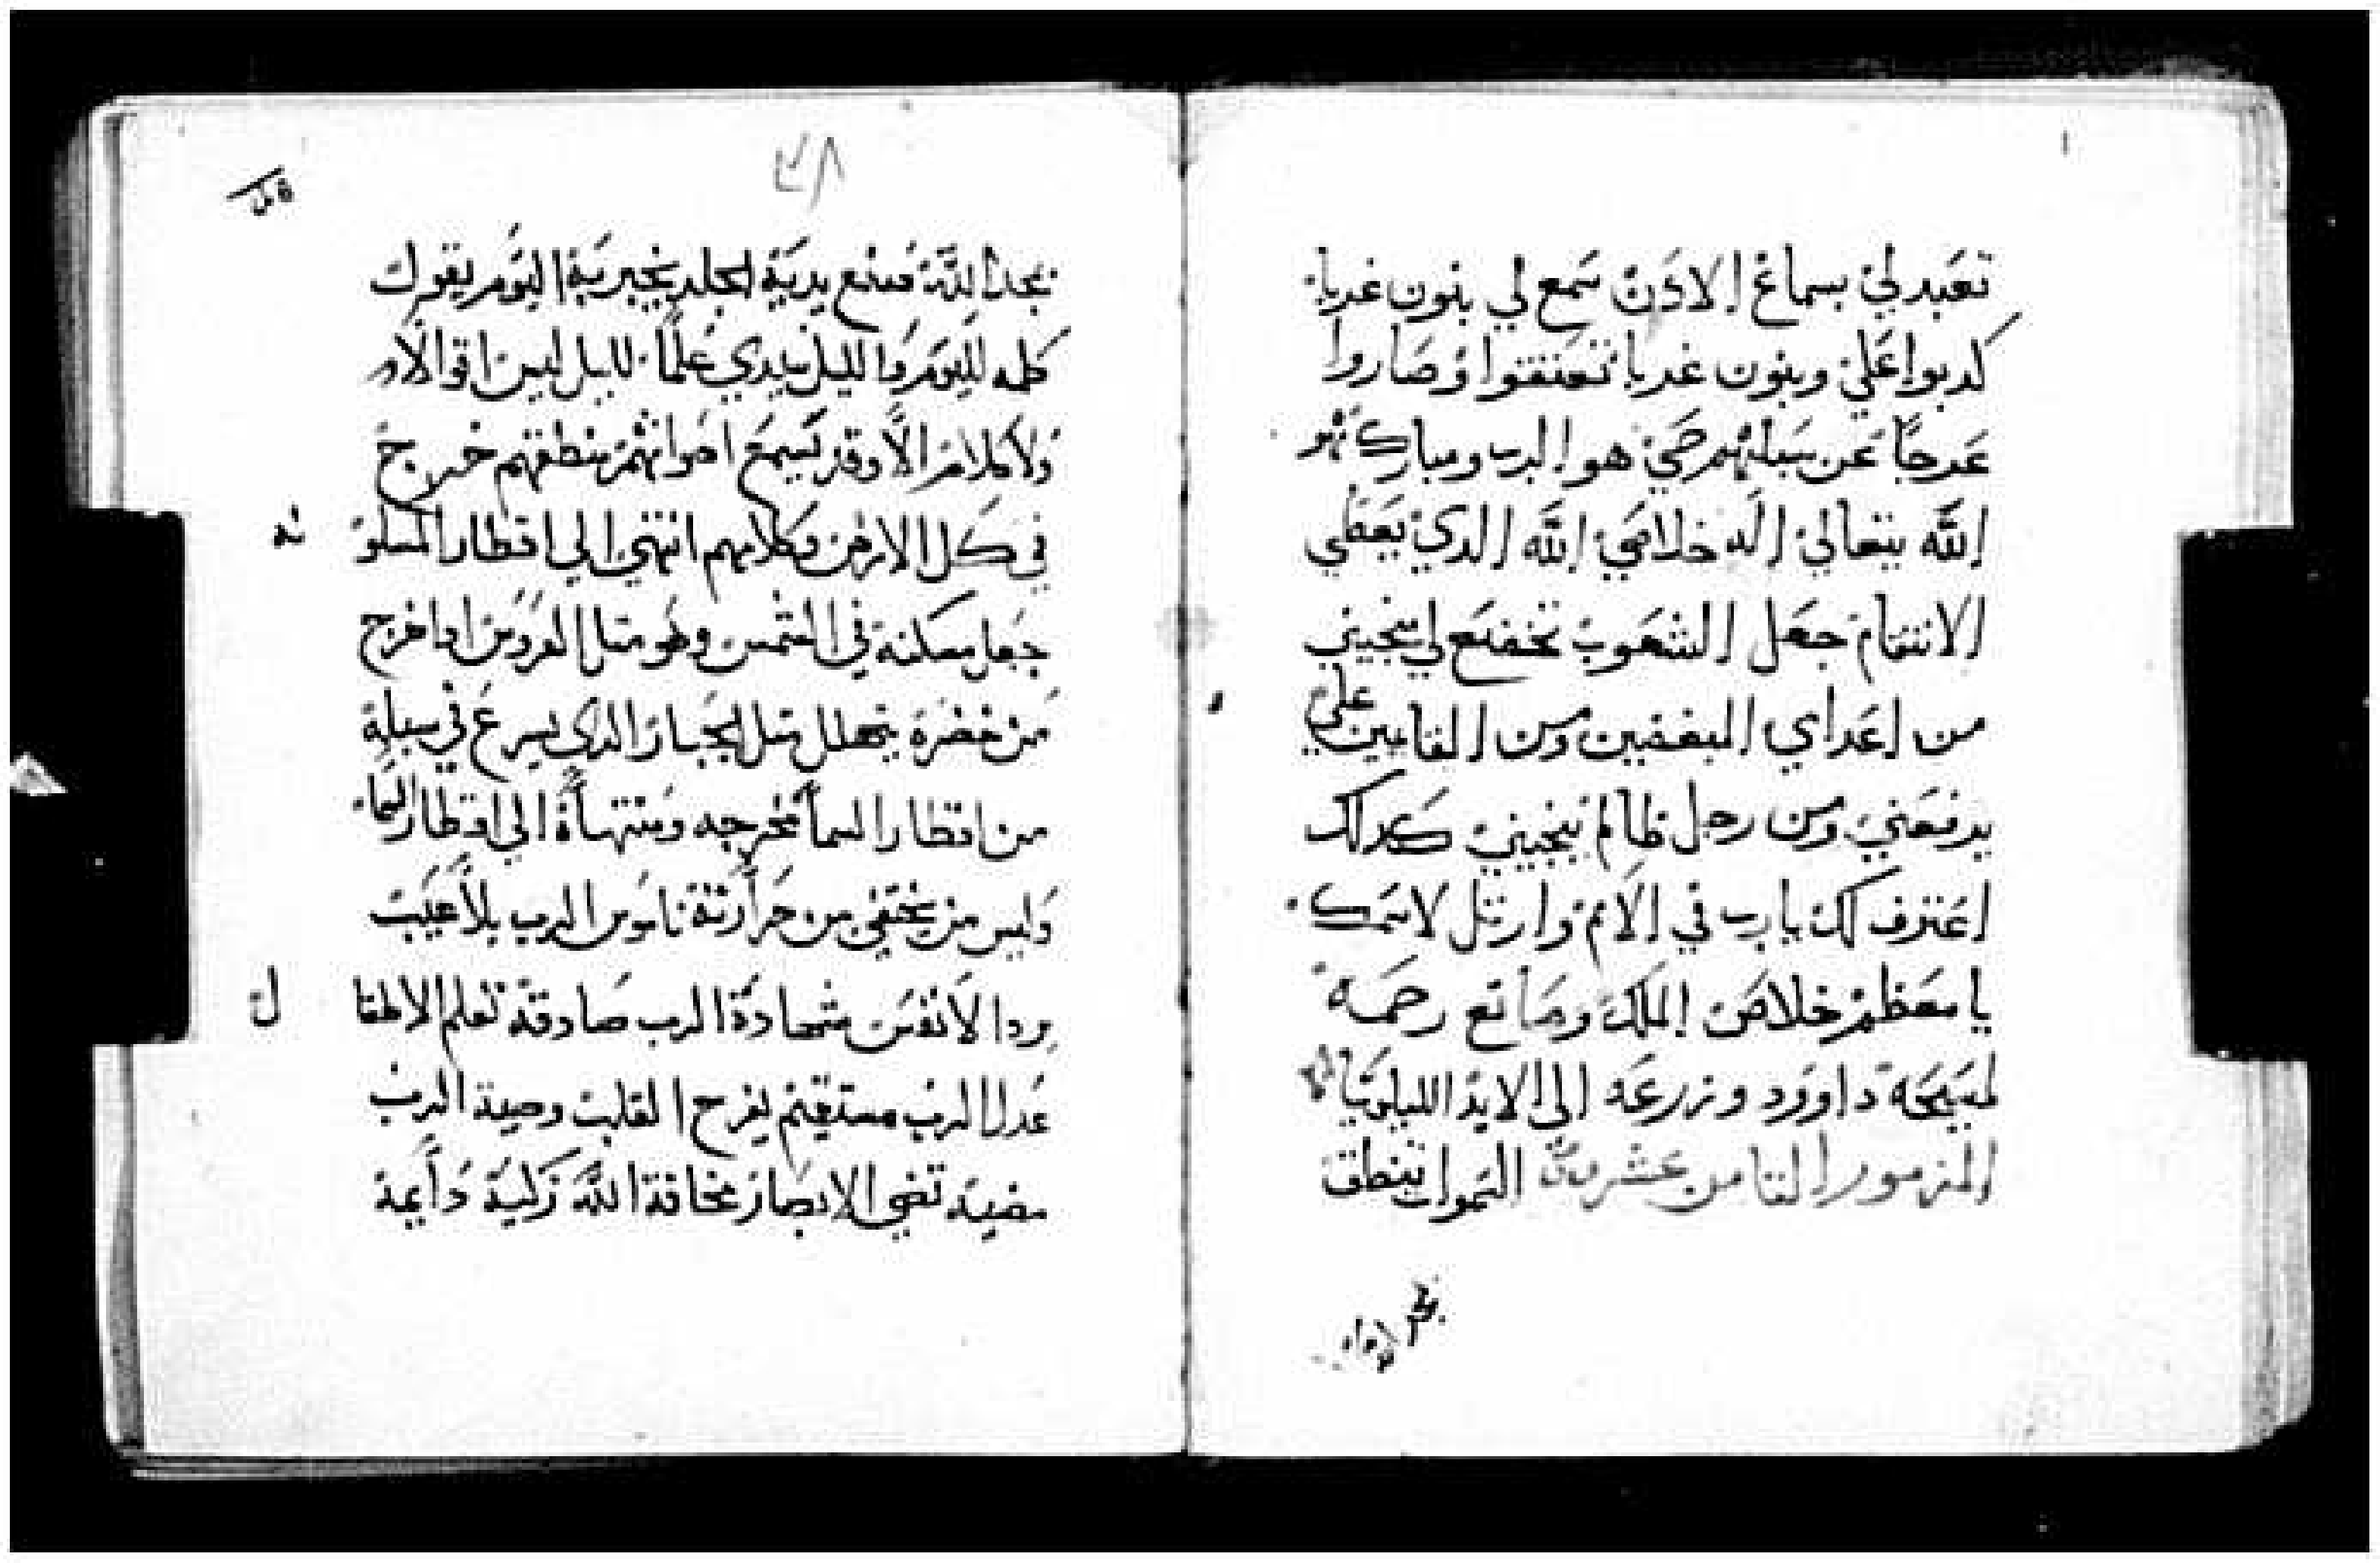 تعبد لي بسماع الادن سمع لي بنون غربا
كدبوا علي وبنون غربا تعتقوا وصاروا
عرجًا عن سبلهم حي هو الرب ومبارك هو
الله يتعالي اله خلاصي الله الدي يعطي
الانتقام جعل الشعوب تخضع لي ينجيني
من اعداي المبغضين ومن القايمين علي
يرفعني ومن رجل ظالم ينجيني كدلك
اعترف لك يارب في الامم وارتل لاسمك
يا معظم خلاص الملك وصانع رحمة
لمسيحة داوود وزرعه الى الابد الليلويا
المزمور الثامن عشر السموات تنطق
بمجد الله وصنع يدية الجلد يخبر بة اليوم يقول
كلمه لليوم والليل يبدي علمًا لليل ليس اقوال
ولا كلام الا وقد يسمع اصواتهم منطقهم خرج
في كل الارض وكلامهم انتهي الي اقطار المسكو نه
جعل مسكنة في الشمس وهو متل العروس ادا خرج
من خضرة يتهلل متل الجبار الدي يسرع في سبيلة
من اقطار السما مخرجه ومنتهاة الي اقطار السما
وليس من يختفي من حرارتة ناموس الرب بلا عيب
يرد الانفس شهادة الرب صادقة تعلم الاطفا ل
عدل الرب مستقيم يفرح القلب وصية الرب
مضية تضي الابصار مخافة الله زكية دايمة